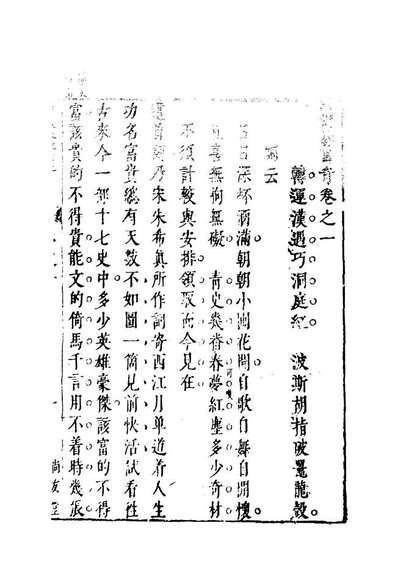 奇卷之一
轉運漢遇巧洞庭紅　波斯胡指破鼉龍殼
詞云
日日深杯酒滿朝朝小圃花開自歌自舞自開懷
且喜無拘無礙　青史幾番春夢紅塵多少奇材
不須計較與安排領取而今見在
這首詞乃宋朱希真所作詞寄西江月单道着人生
功名富貴總有天數不如圖一箇見前快活試看往
古來今一部十七史中多少英雄豪傑該富的不得
富該貴的不得貴能文的倚馬千言用不着時幾張
尚友堂